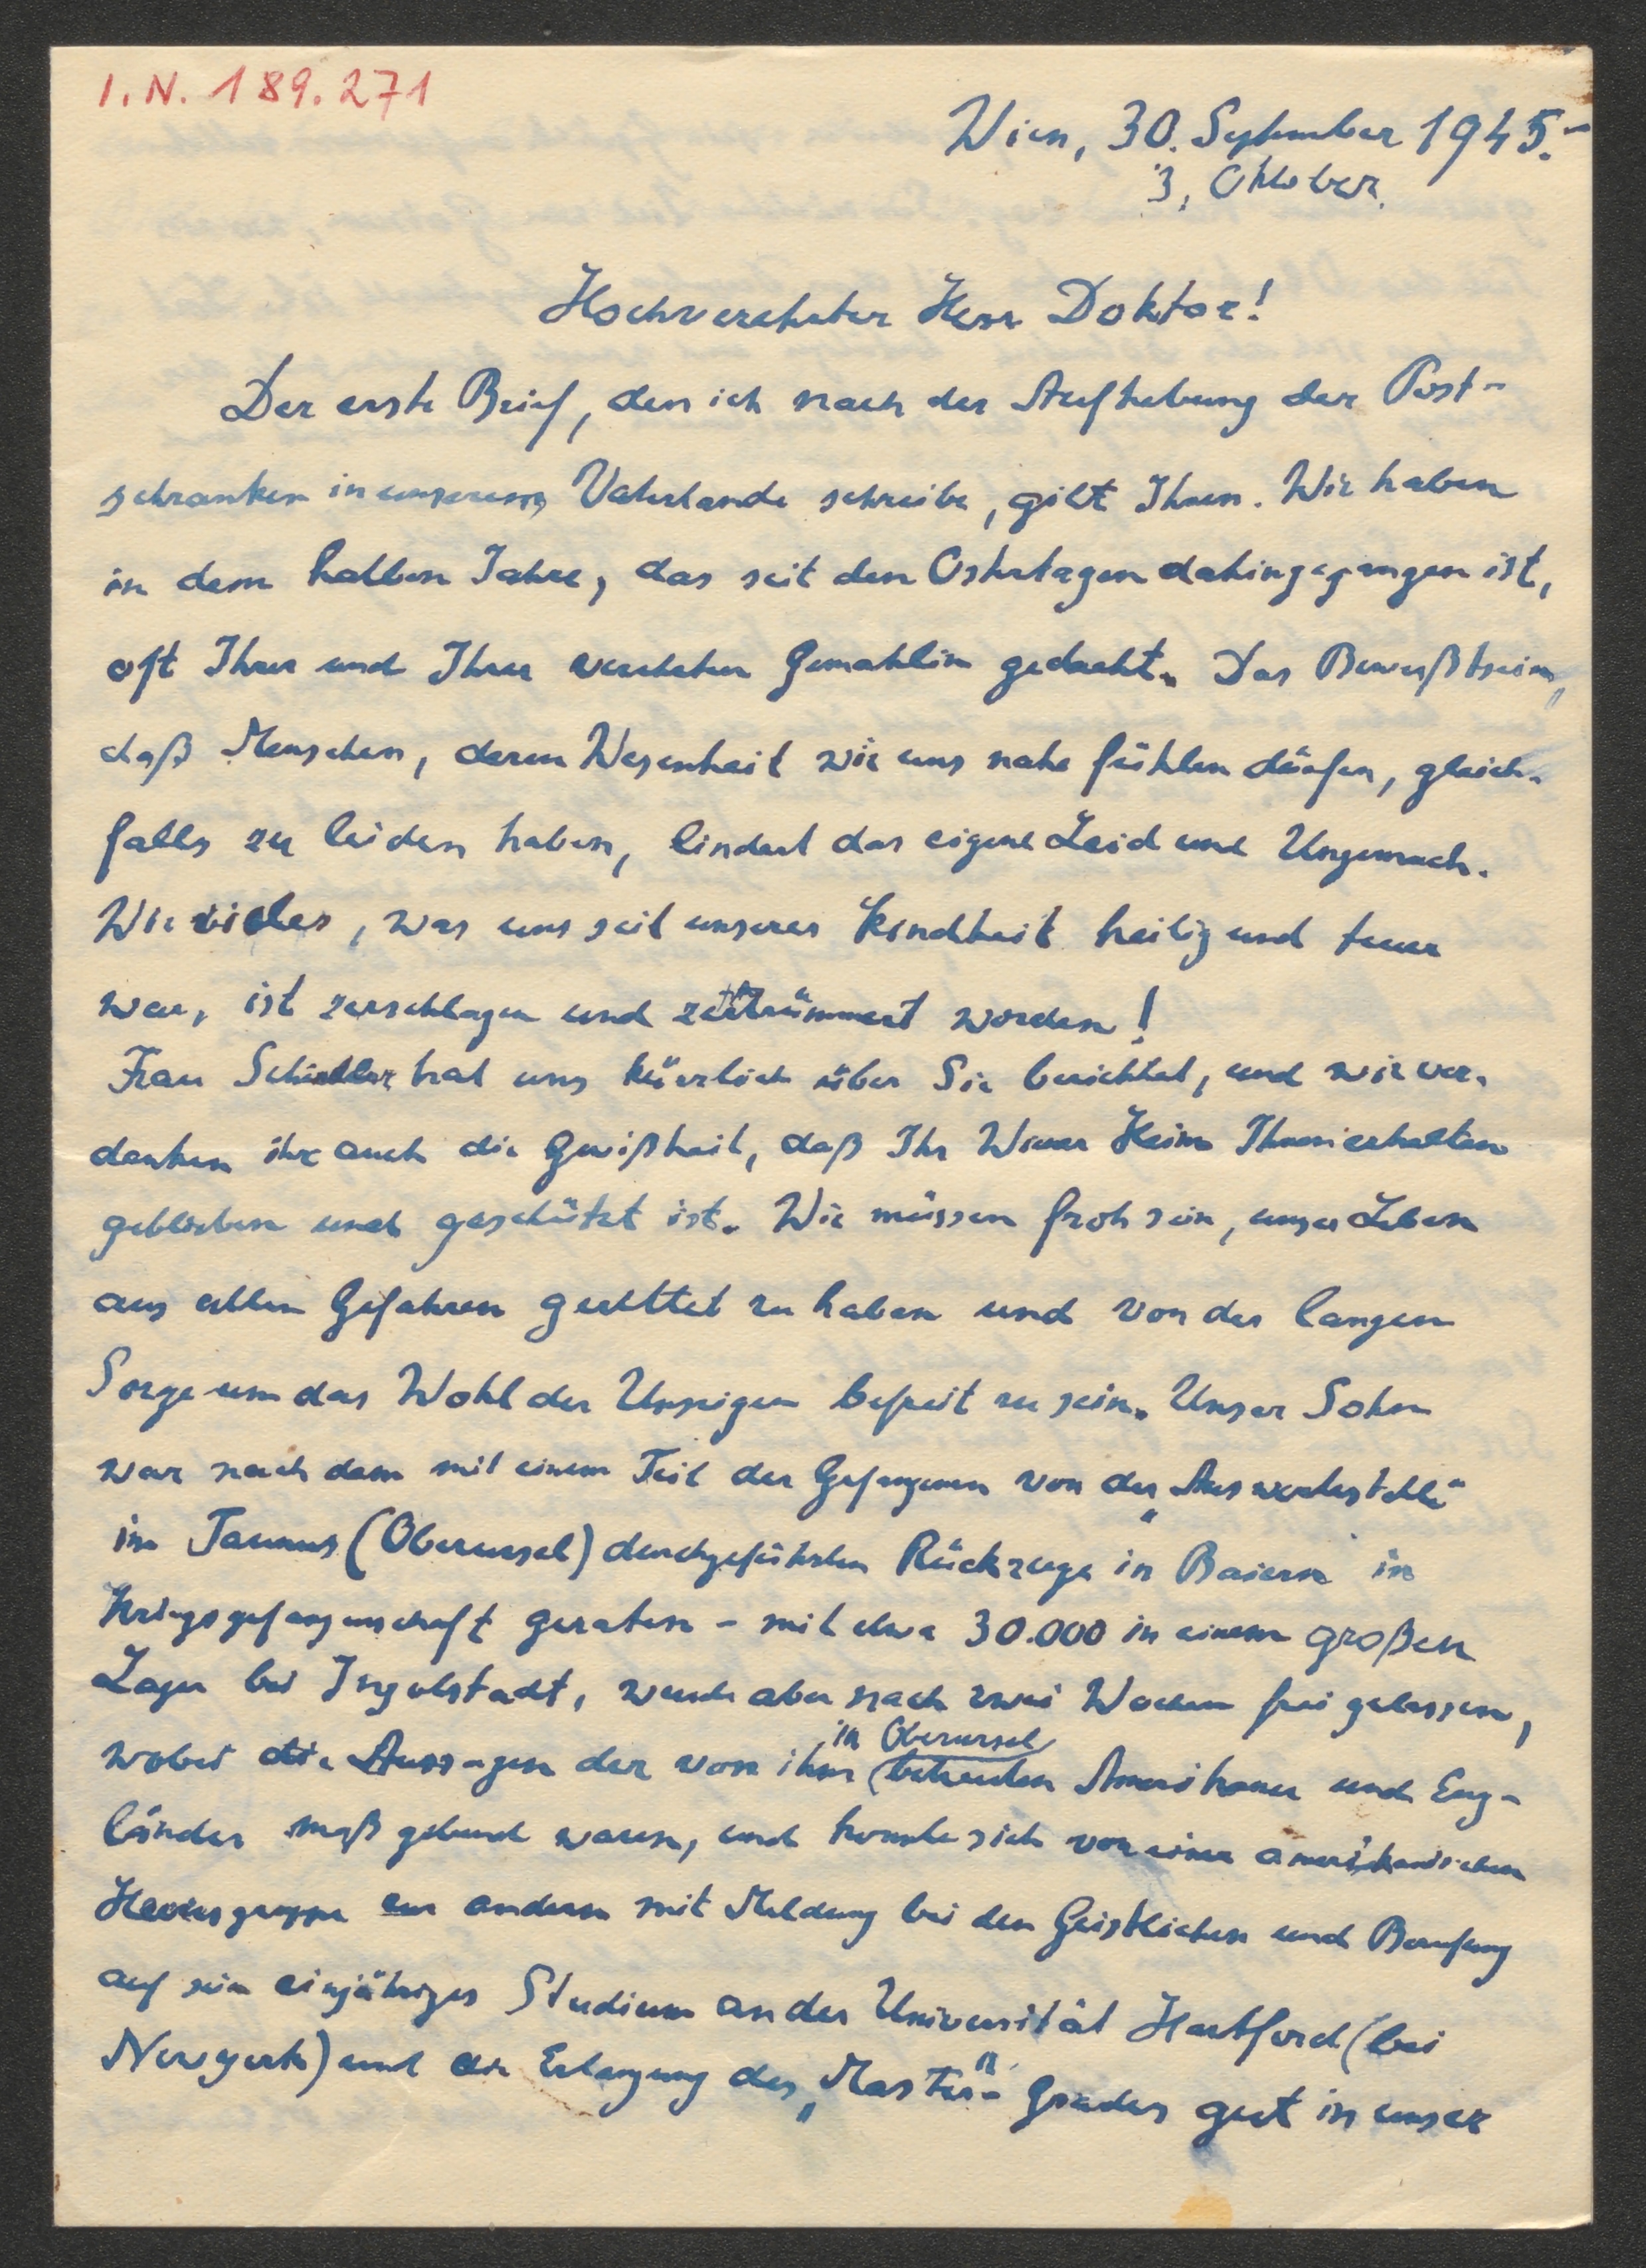 I.N. 189.271
Wien, 30. September 1945.-
3, Oktober.
Hochverehrter Herr Doktor!
Der erste Brief, den ich nach der Aufhebung der Post-
schranken in unserem Vaterlande schreibe, gilt Ihnen. Wir haben
in dem halben Jahre, das seit den Ostertagen dahingegangen ist,
oft Ihrer und Ihrer verehrten Gemahlin gedacht. Das Bewußtsein,
daß Menschen, deren Wesenheit wir uns nahe fühlen dürfen, gleich-
falls zu leiden haben, lindert das eigene Leid und Ungemach.
Wie vieles, was uns seit unserer Kindheit heilig und teuer
war, ist zerschlagen und zertrümmert worden!
Frau hat uns kürzlich über Sie berichtet, und wir ver-
danken ihr auch die Gewißheit, daß Ihr Wiener Heim Ihnen erhalten
geblieben und geschützt ist. Wir müssen froh sein, unser Leben
aus allen Gefahren gerettet zu haben und von der langen
Sorge um das Wohl der Unsrigen befreit zu sein. Unser Sohn
war nach dem mit einem Teil der Gefangenen von der „Auswertestelle"
im Taunus (Oberursel) durchgeführten Rückzuge in Baiern in
Kriegsgefangenschaft geraten - mit etwa 30.000 in einem großen
Lager bei Ingolstadt, wurde aber nach zwei Wochen frei gelassen,
wobei die Aussagen der von ihm in Oberursel betreuten Amerikaner und Eng-
länder maßgebend waren, und konnte sich von einer amerikanischen
Heeresgruppe zur andern mit Meldung bei den Geistlichen und Berufung
auf sein einjähriges Studium an der Universität Hartford (bei
Newyork) und die Erlangung des „Master"- Grades gut in unser